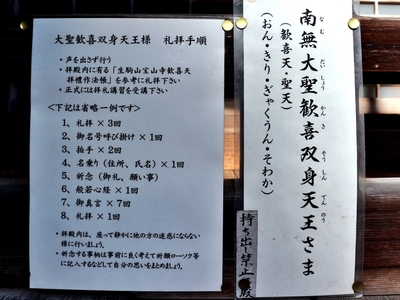 大聖歓喜双身天王様　礼拝手順
・声を出さず行う
・拝殿内に有る「生駒山宝山寺歓喜天
拝禮作法帳」を参考に礼拝下さい
・正式には拝礼講習を受講下さい
<下記は省略一例です>
1、礼拝 × 3回
2、御名号呼び掛け × 1回
3、拍手 × 2回
4、名乗り（住所、氏名）× 1回
5、祈念（御礼、願い事）
6、般若心経 × 1回
7、御真言 × 7回
8、礼拝 × 1回
・拝殿内は、座って静かに他の方の迷惑にならない
様に行いましょう。
・祈念する事柄は事前に良く考えて祈願ローソク等
に記入するなどして自分の思いをまとめましょう。
南無大聖歓喜双身天王さま
なむ だいしょう かんき そうしん てんのう
（歓喜天・聖天）
（おん・きり・ぎゃくうん・そわか）
持ち出し禁止